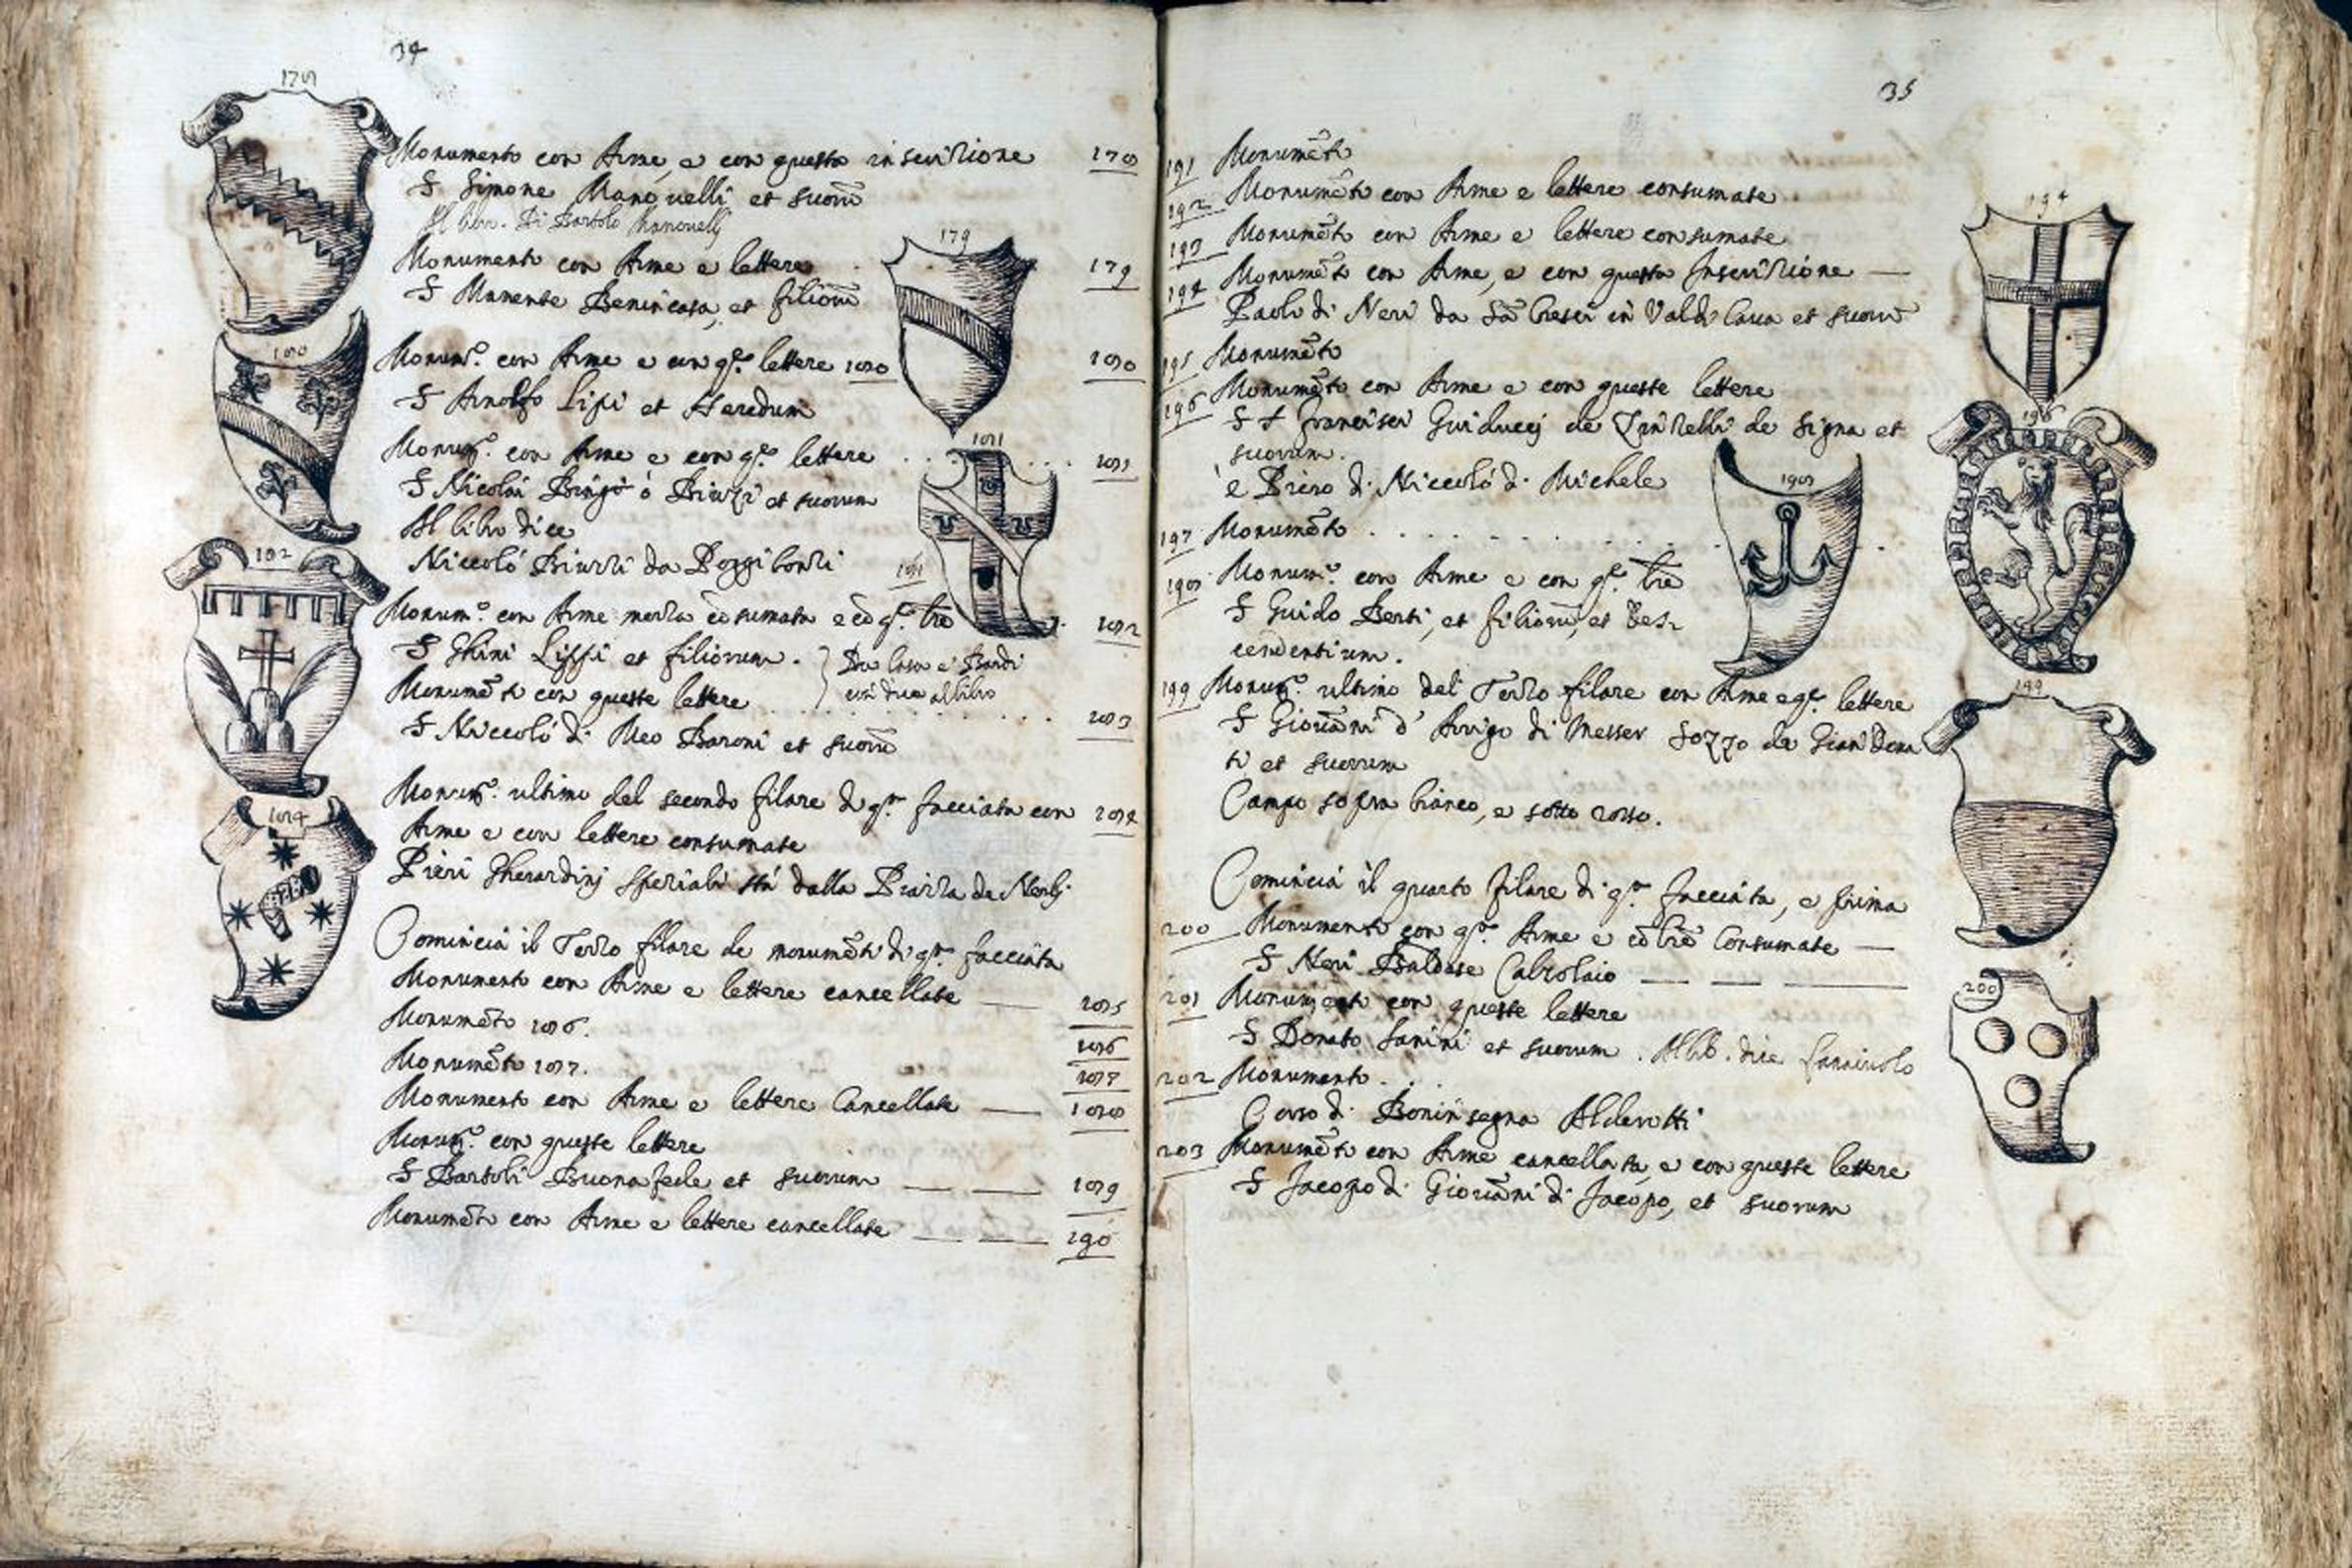 34
178
Monumento con Arme, e con questa inscrizione 178
S Simone Manovelli et suorũ
Al libro. Di Bartolo Manovelli
179
Monumento con Arme e lettere 179
S Manente Benincasa, et filiorũ
180
Monumº. con Arme e con qᵉ. lettere 180 180
S Arnolfo Lipi et Haredum
181
Monumº. con Arme e con qᵉ. lettere 181
S Nicolai ò et suorum
Al libro dice
Niccolò da Poggibonzi 181
182
Monumº. con Arme mezza cõsumata e cõ qᵉ. lrẽ 182
S Ghini Lippi et filiorum. Da Casa e Bardi
così dice al libro
Monumẽto con queste lettere 183
S Niccolò di Meo Baroni et suorũ
184
Monumº. ultimo del secondo filare di qᵃ. facciata con 184
Arme e con lettere consumate
Pieri Gherardinj speziali stà dalla Piazza de Nerlj
Comincia il Terzo filare de monumẽti di qᵃ. facciata
Monumento con Arme e lettere cancellate 185
Monumẽto 186. 186
Monumẽto 187. 187
Monumento con Arme e lettere Cancellate 188
Monumº. con queste lettere
S Bartoli Buonafede et suorum 189
Monumẽto con Arme e lettere cancellate 190
35
191 Monumẽto
192 Monumẽto con Arme e lettere consumate
193 Monumẽto con Arme e lettere consumate
194
194 Monumẽto con Arme, e con questa Inscrizione
Paolo di Neri da Sã Cresci in Valdi Cava et suorũ
195 Monumẽto
196
196 Monumẽto con Arme e con queste lettere
S + Francisci Guiduccj de de Signa et
suorum.
è Piero di Niccolò di Michele
198
197 Monumẽto
198 Monumº. con Arme e con qᵉ. lrẽ
S Guido Berti, et filiorũ, et Des
cendentium.
199
199 Monumº. ultimo del Terzo filare con Arme e qᵉ. lettere
S Giovãni d' Arrigo di Messer Sozzo da Gian Dona
ti et suorum
Campo sopra bianco, e sotto rosso.
Comincia il quarto filare di qᵃ. facciata, e prima
200 Monumento con qᵃ. Arme e cõ lrẽ Consumate
S Neri Baldese Calzolaio
200
201 Monumento con queste lettere
S Donato Sanini et suorum. Al lib. dice
202 Monumento.
Corso di Boninsegna Alderotti
203 Monumẽto con Arme cancellata, e con queste lettere
S Jacopo di Giovãni di Jacopo, et suorum